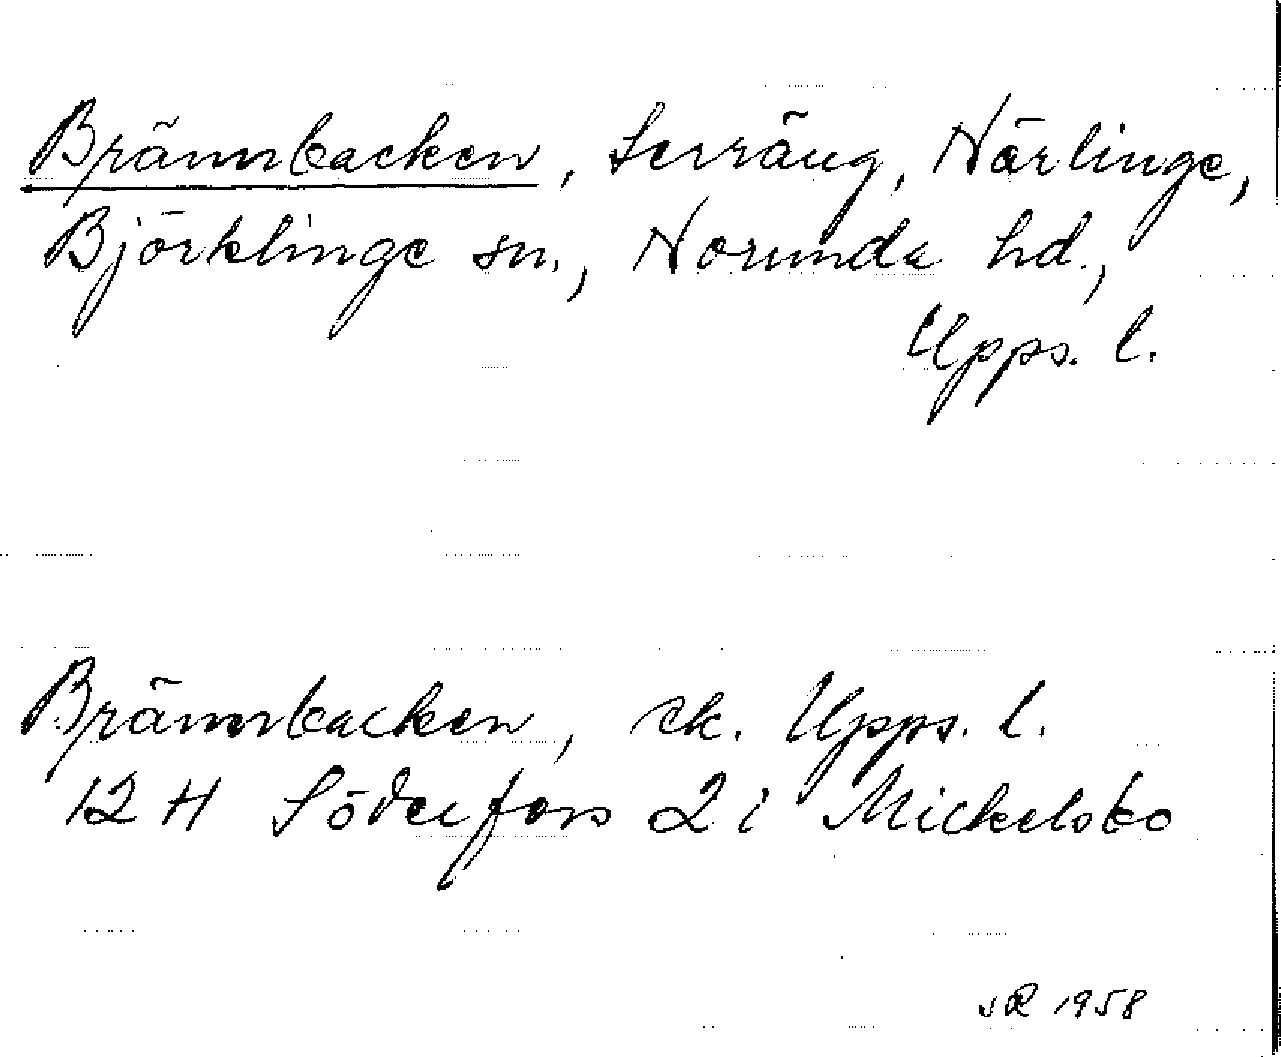 Brännbacken, terräng, Närlinge,
Björklinge sn., Norunda hd.,
Upps. l.
Brännbacken, ek. Upps. l.
12 H Söderfors 2 i Mickelsbo
1958